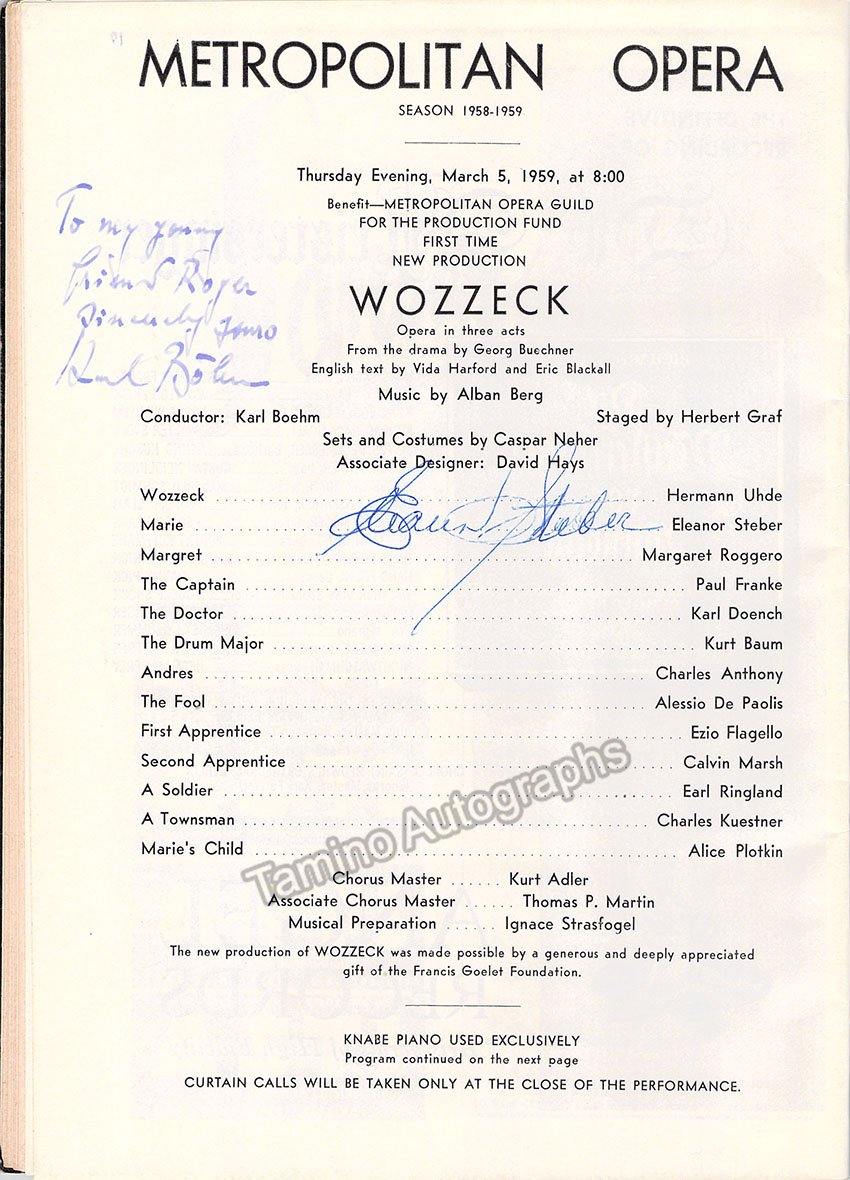 METROPOLITAN OPERA
SEASON 1958-1959
Thursday Evening, March 5, 1959, at 8:00
Benefit—METROPOLITAN OPERA GUILD
FOR THE PRODUCTION FUND
FIRST TIME
NEW PRODUCTION
To my young
friend Roger
Sincerely yours
Karl Böhm
WOZZECK
Opera in three acts
From the drama by Georg Buechner
English text by Vida Harford and Eric Blackall
Music by Alban Berg
Conductor: Karl Boehm Staged by Herbert Graf
Sets and Costumes by Caspar Neher
Associate Designer: David Hays
Wozzeck Hermann Uhde
Eleanor Steber
Marie Eleanor Steber
Margret Margaret Roggero
The Captain Paul Franke
The Doctor Karl Doench
The Drum Major Kurt Baum
Andres Charles Anthony
The Fool Alessio De Paolis
First Apprentice Ezio Flagello
Second Apprentice Calvin Marsh
A Soldier Earl Ringland
A Townsman Charles Kuestner
Marie's Child Alice Plotkin
Tamino Autographs
Chorus Master ...... Kurt Adler
Associate Chorus Master ...... Thomas P. Martin
Musical Preparation ...... Ignace Strasfogel
The new production of WOZZECK was made possible by a generous and deeply appreciated
gift of the Francis Goelet Foundation.
KNABE PIANO USED EXCLUSIVELY
Program continued on the next page
CURTAIN CALLS WILL BE TAKEN ONLY AT THE CLOSE OF THE PERFORMANCE.